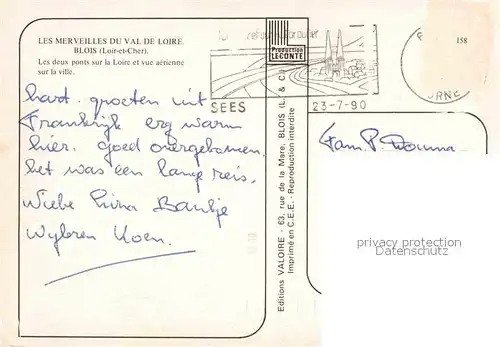 LES MERVEILLES DU VAL DE LOIRE.
BLOIS (Loir-et-Cher).
Les deux ponts sur la Loire et vue aérienne
sur la ville.
hart. groeten uit
Frankrijk erg warm
hier. goed overgekomen.
het was een lange reis.
Wiebe Baukje
Wybren Koen.
Production
LECONTE
SEES
23-7-90
ORNE
158
Editions VALOIRE - 63, rue de la Mare, BLOIS (L. & C.)
Imprimé en C.E.E. - Reproduction interdite
Fam. P. Douma
privacy protection
Datenschutz